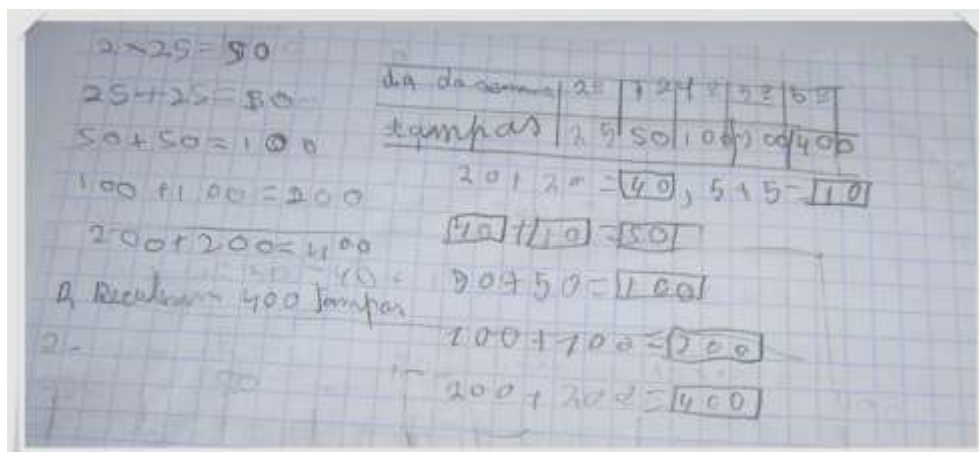 2×25=50
25+25=50
50+50=100
100+100=200
200+200=400
R 400 Tampas
2-
dia da semana
tampas | 25 | 50 | 100 | 200 | 400
20+20=40, 5+5=10
40+10=50
50+50=100
100+100=200
200+200=400